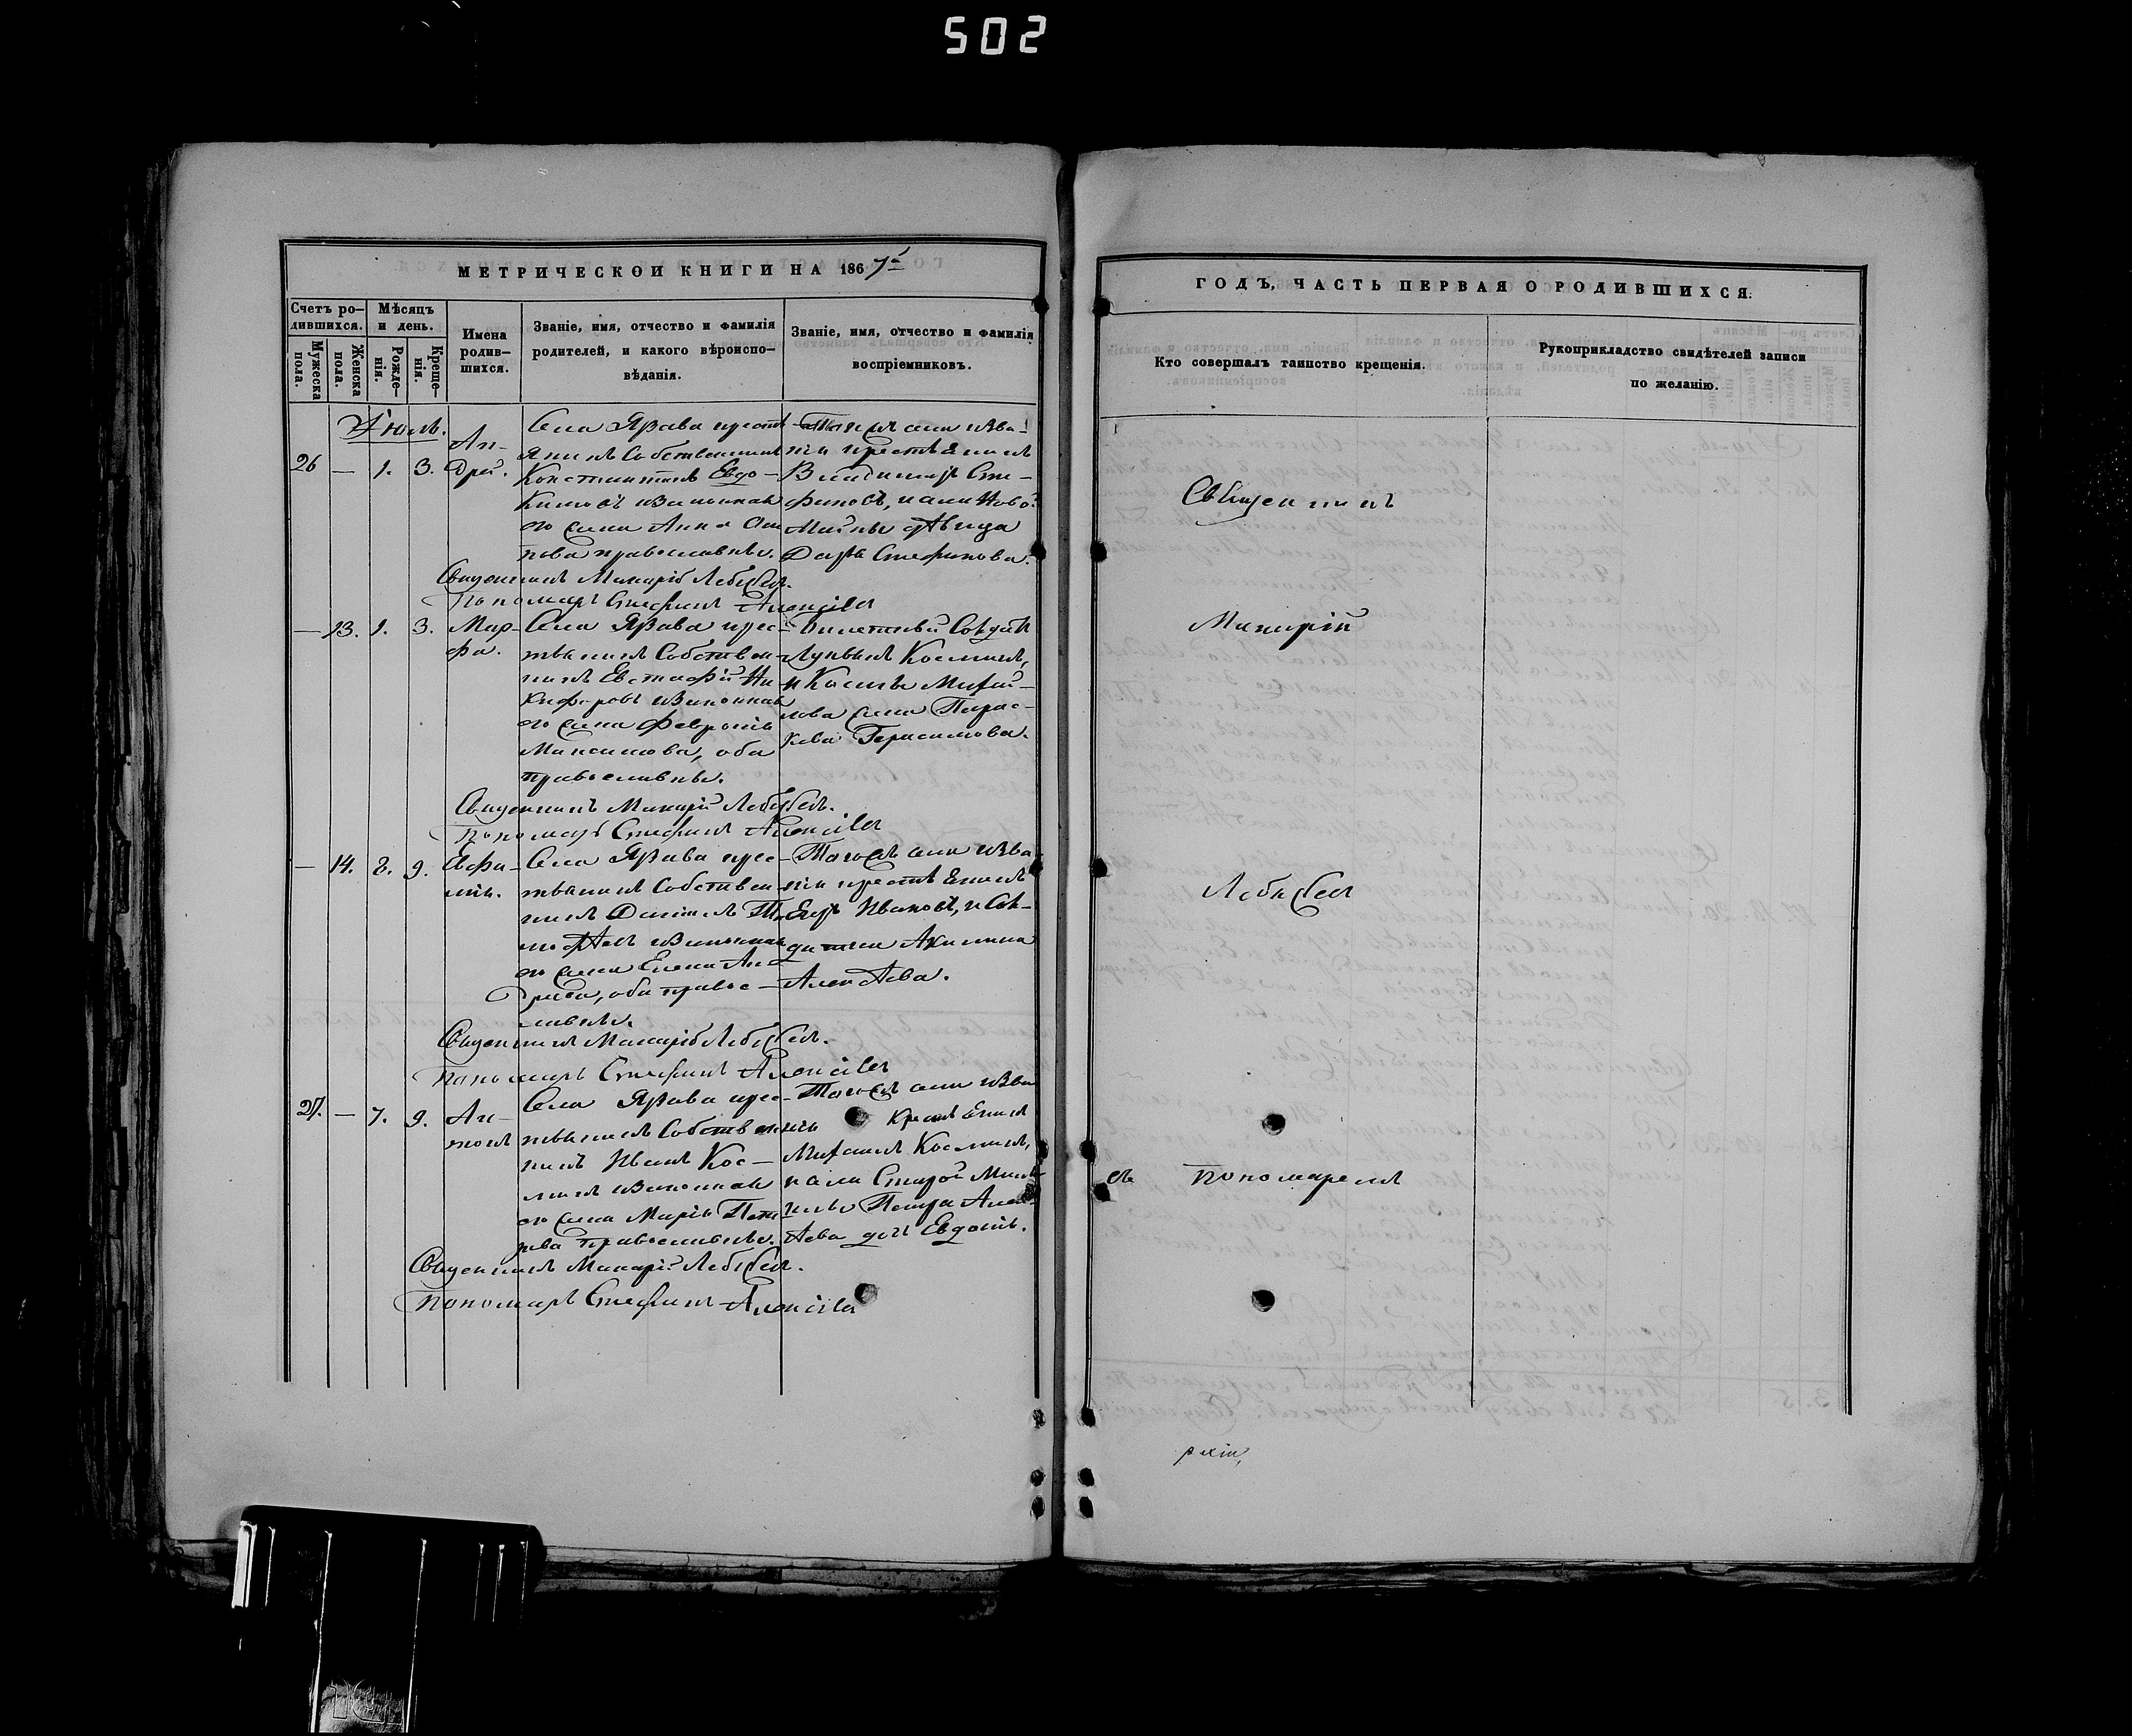 502
МЕТРИЧЕСКОЙ КНИГИ НА 1867й
Счетъ ро-
дившихся.
Мѣсяцъ
и день.
Мужеска
пола.
Женска
пола.
Рожде-
нія.
Креще-
нія.
Имена
родив-
шихся.
Званіе, имя, отчество и фамилія
родителей, и какого вѣроиспо-
вѣданія.
Званіе, имя, отчество и фамилія
воспріемниковъ.
Іюль.
26 — 1. 3. Ан-
дрей.
Села крест
янинъ Собственникъ
Константинъ Евдо-
кимовъ и законная
его жена Анна
пова православные.
Тогоже села
крестьянинъ
Владимиръ Сте-
фановъ, и
дѣвица
Дарья Стефанова.
Священникъ Макарій Лебедевъ.
Пономарь Стефанъ
— 13. 1. 3. Мар-
фа.
Села крес-
тьянинъ Собствен-
никъ Евстафій Ни-
кифоровъ и законная
его жена Февронія
Максимова, оба
православные.
Билетный Солдатъ
Лукьянъ Косминъ,
и Космы Михай-
лова жена Парас-
кева Герасимова.
Священникъ Макарій Лебедевъ.
Пономарь Стефанъ
— 14. 8. 9. Евфи-
мія.
Села крес-
тьянинъ Собствен-
никъ Даніилъ Ти-
мофѣевъ и законная
его жена Елена Анд
реева, оба правос-
лавные.
Тогоже села
крестьянинъ
Егоръ Ивановъ, и Сол-
датка Акилина
Алексѣева.
Священникъ Макарій Лебедевъ.
Пономарь Стефанъ
27. — 7. 9. Ан-
тонъ
Села крес-
тьянинъ Собствен
никъ Иванъ Кос-
минъ и законная
его жена Марія Пет
рова православные.
Тогоже села
крестьянинъ
Михаилъ Косминъ,
Старой
Петра Алек-
сѣева дочь Евдокія.
Священникъ Макарій Лебедевъ.
Пономарь Стефанъ
ГОДЪ, ЧАСТЬ ПЕРВАЯ О РОДИВШИХСЯ.
Кто совершалъ таинство крещенія.
Рукоприкладство свидѣтелей записи
по желанію.
Священникъ
Макарій
Лебедевъ
съ Пономаремъ